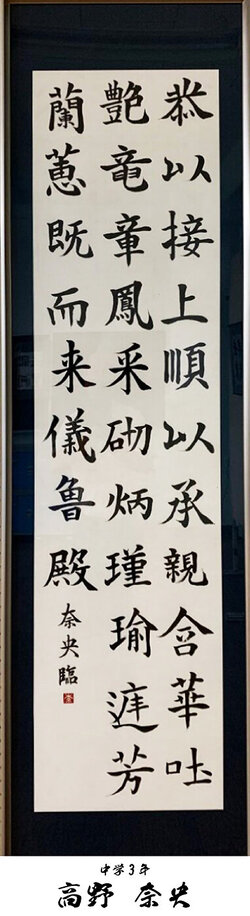 恭以接上順以承親含華吐
艶竜章鳳采砌炳瑾瑜庭芳
蘭蕙既而来儀魯殿
奈央臨
中学3年
高野 奈央